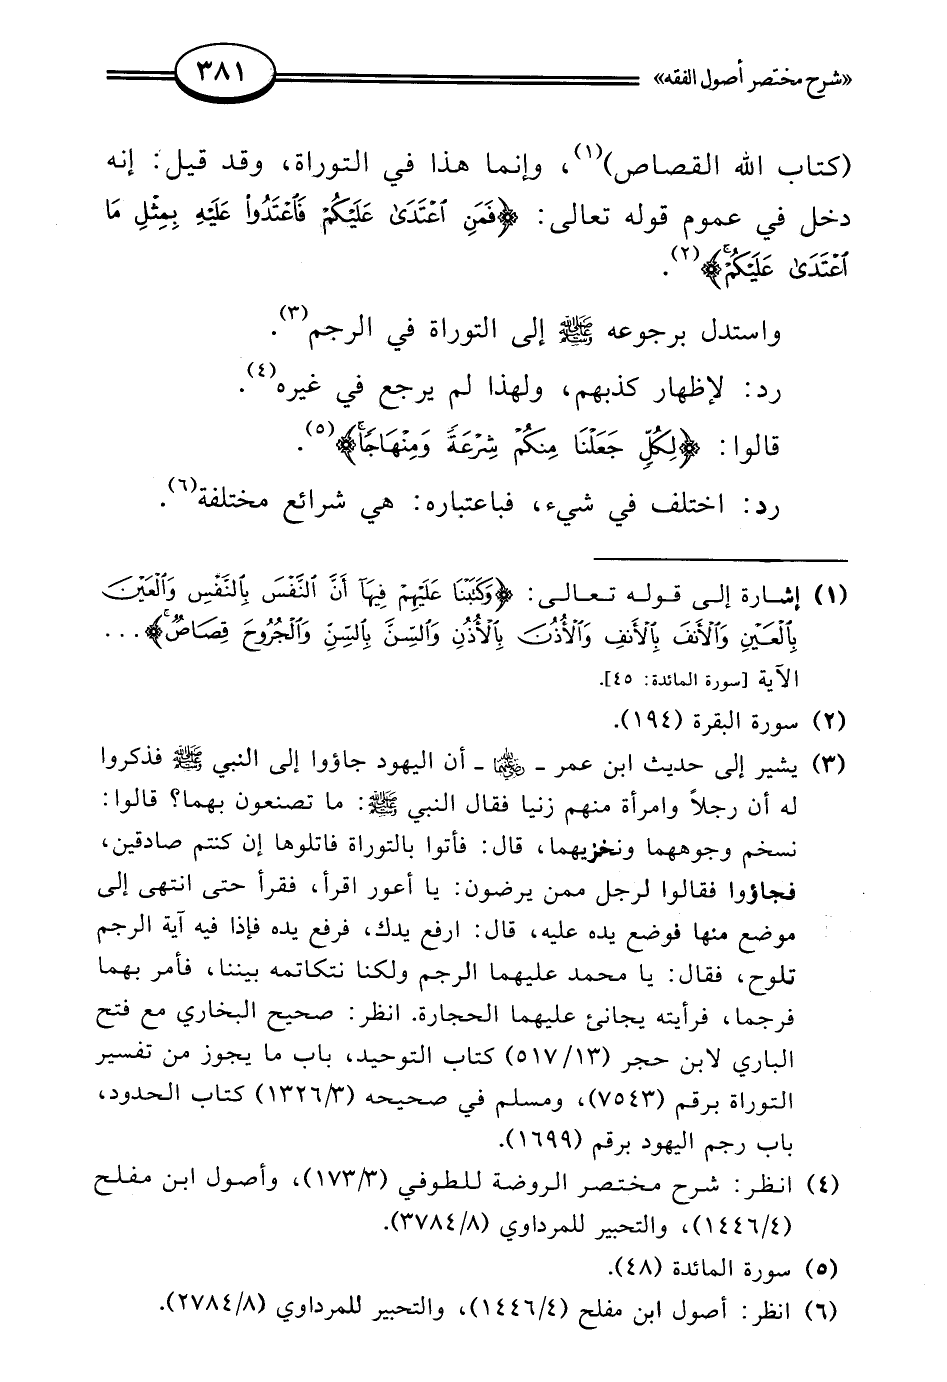 «شرح مختصر أصول الفقه» ٣٨١
(كتاب الله القصاص)(١)، وإنما هذا في التوراة، وقد قيل: إنه
دخل في عموم قوله تعالى: ﴿فَمَنِ ٱعْتَدَىٰ عَلَيْكُمْ فَٱعْتَدُوا۟ عَلَيْهِ بِمِثْلِ مَا
ٱعْتَدَىٰ عَلَيْكُمْ ۚ﴾(٢).
واستدل برجوعه ﷺ إلى التوراة في الرجم(٣).
رد: لإظهار كذبهم، ولهذا لم يرجع في غيره(٤).
قالوا: ﴿لِكُلٍّ جَعَلْنَا مِنكُمْ شِرْعَةً وَمِنْهَاجًا ۚ﴾(٥).
رد: اختلف في شيء، فباعتباره: هي شرائع مختلفة(٦).
(١) إشارة إلى قوله تعالى: ﴿وَكَتَبْنَا عَلَيْهِمْ فِيهَآ أَنَّ ٱلنَّفْسَ بِٱلنَّفْسِ وَٱلْعَيْنَ
بِٱلْعَيْنِ وَٱلْأَنفَ بِٱلْأَنفِ وَٱلْأُذُنَ بِٱلْأُذُنِ وَٱلسِّنَّ بِٱلسِّنِّ وَٱلْجُرُوحَ قِصَاصٌ ۚ﴾...
الآية [سورة المائدة: ٤٥].
(٢) سورة البقرة (١٩٤).
(٣) يشير إلى حديث ابن عمر ـ رضي الله عنهما ـ أن اليهود جاؤوا إلى النبي ﷺ فذكروا
له أن رجلاً وامرأة منهم زنيا فقال النبي ﷺ: ما تصنعون بهما؟ قالوا:
نسخم وجوههما ونخزيهما، قال: فأتوا بالتوراة فاتلوها إن كنتم صادقين،
فجاؤوا فقالوا لرجل ممن يرضون: يا أعور اقرأ، فقرأ حتى انتهى إلى
موضع منها فوضع يده عليه، قال: ارفع يدك، فرفع يده فإذا فيه آية الرجم
تلوح، فقال: يا محمد عليهما الرجم ولكنا نتكاتمه بيننا، فأمر بهما
فرجما، فرأيته يجانئ عليهما الحجارة. انظر: صحيح البخاري مع فتح
الباري لابن حجر (٥١٧/١٣) كتاب التوحيد، باب ما يجوز من تفسير
التوراة برقم (٧٥٤٣)، ومسلم في صحيحه (١٣٢٦/٣) كتاب الحدود،
باب رجم اليهود برقم (١٦٩٩).
(٤) انظر: شرح مختصر الروضة للطوفي (١٧٣/٣)، وأصول ابن مفلح
(١٤٤٦/٤)، والتحبير للمرداوي (٣٧٨٤/٨).
(٥) سورة المائدة (٤٨).
(٦) انظر: أصول ابن مفلح (١٤٤٦/٤)، والتحبير للمرداوي (٢٧٨٤/٨).